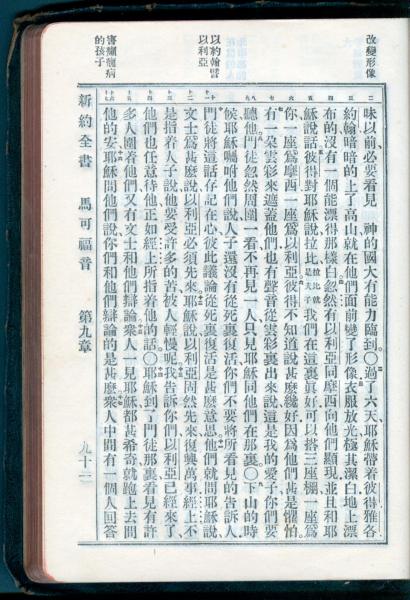 改變形像
以約翰譬
以利亞
害癲癎病
的孩子
味以前必要看見 神的國大有能力臨到〇過了六天耶穌帶着彼得雅各
約翰暗暗的上了高山就在他們面前變了形像衣服放光極其潔白地上漂
布的沒有一個能漂得那樣白忽然有以利亞同摩西向他們顯現並且和耶
穌說話彼得對耶穌說拉比拉比就是夫子我們在這裏眞好可以搭三座棚一座爲
你一座爲摩西一座爲以利亞彼得不知道說甚麽纔好因爲他們甚是懼怕
有一朵雲彩來遮蓋他們也有聲音從雲彩裏出來說這是我的愛子你們要
聽他門徒忽然周圍一看不再見一人只見耶穌同他們在那裏〇下山的時
候耶穌囑咐他們說人子還沒有從死裏復活你們不要將所看見的告訴人
門徒將這話存記在心彼此議論從死裏復活是甚麽意思他們就問耶穌說
文士爲甚麽說以利亞必須先來耶穌說以利亞固然先來復興萬事經上不
是指着人子說他要受許多的苦被人輕慢呢我告訴你們以利亞已經來了
他們也任意待他正如經上所指着他的話〇耶穌到了門徒那裏看見有許
多人圍着他們又有文士和他們辯論衆人一見耶穌都甚希奇就跑上去問
他的安耶穌問他們說你們和他們辯論的是甚麽衆人中間有一個人回答
新約全書 馬可福音 第九章 九十二